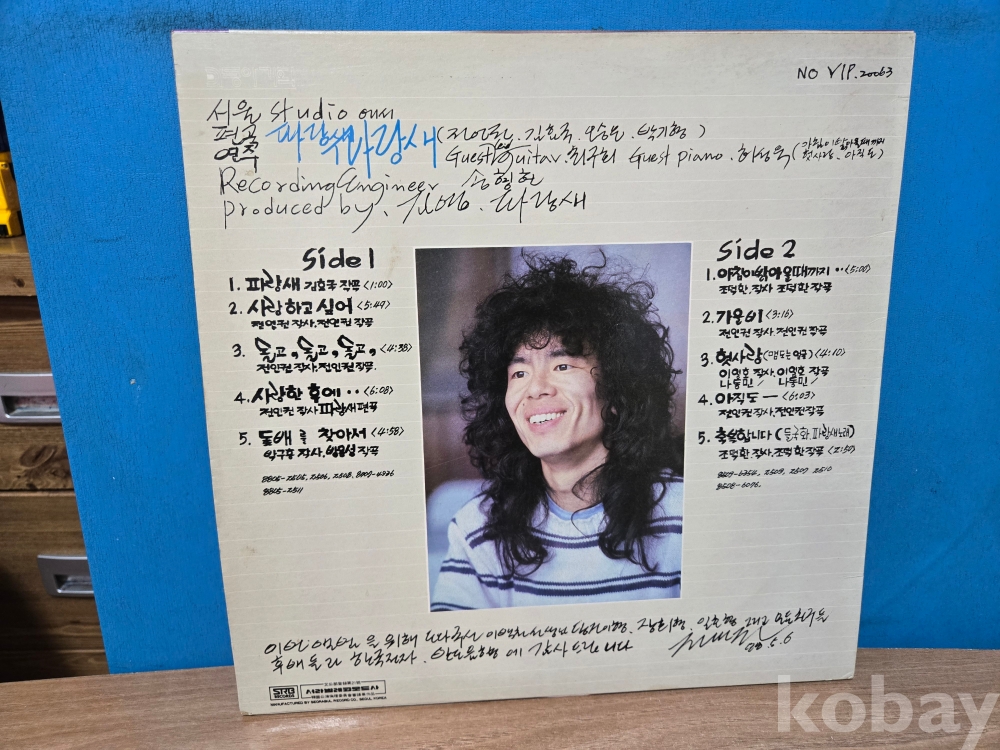 NO VIP.20063
서울 Studio 에서
편곡 파랑새
연주 파랑새 (전인권. 김효국. 오승은. 박기형)
Guest Guitar. 최구희 Guest Piano. 하성욱 (아침이 밝아올때까지
헛사랑. 아직도)
Recording Engineer 송형헌
Produced by. 파랑새
Side 1
1. 파랑새 김효국 작곡 <1:00>
2. 사랑하고 싶어 <5:49>
전인권 작사. 전인권 작곡
3. 돌고, 돌고, 돌고, <4:38>
전인권 작사. 전인권 작곡.
4. 사랑한 후에 ·· <6:08>
전인권 작사 파랑새 편곡
5. 돛배를 찾아서 <4:58>
작사. 작곡
Side 2
1. 아침이 밝아올때까지 ·· <5:00>
조덕환. 작사 조덕환 작곡
2. 가운비 <3:16>
전인권 작사. 전인권 작곡
3. 헛사랑 (맴도는 얼굴) <4:10>
이영호 작사. 이영호 작곡
나동민 나동민
4. 아직도 — <6:03>
전인권 작사. 전인권 작곡
5. 축복합니다 (들국화. 파랑새 노래)
조덕환 작사. 조덕환 작곡 <2:50>
이번 앨범을 위해 도와주신 그리고 모든 친구들
후배들과 한국전자. 에 감사드립니다
88.5.6
SRB
RECORDS
서라벌레코드사
MANUFACTURED BY SEORABUL RECORD CO., SEOUL, KOREA
kobay